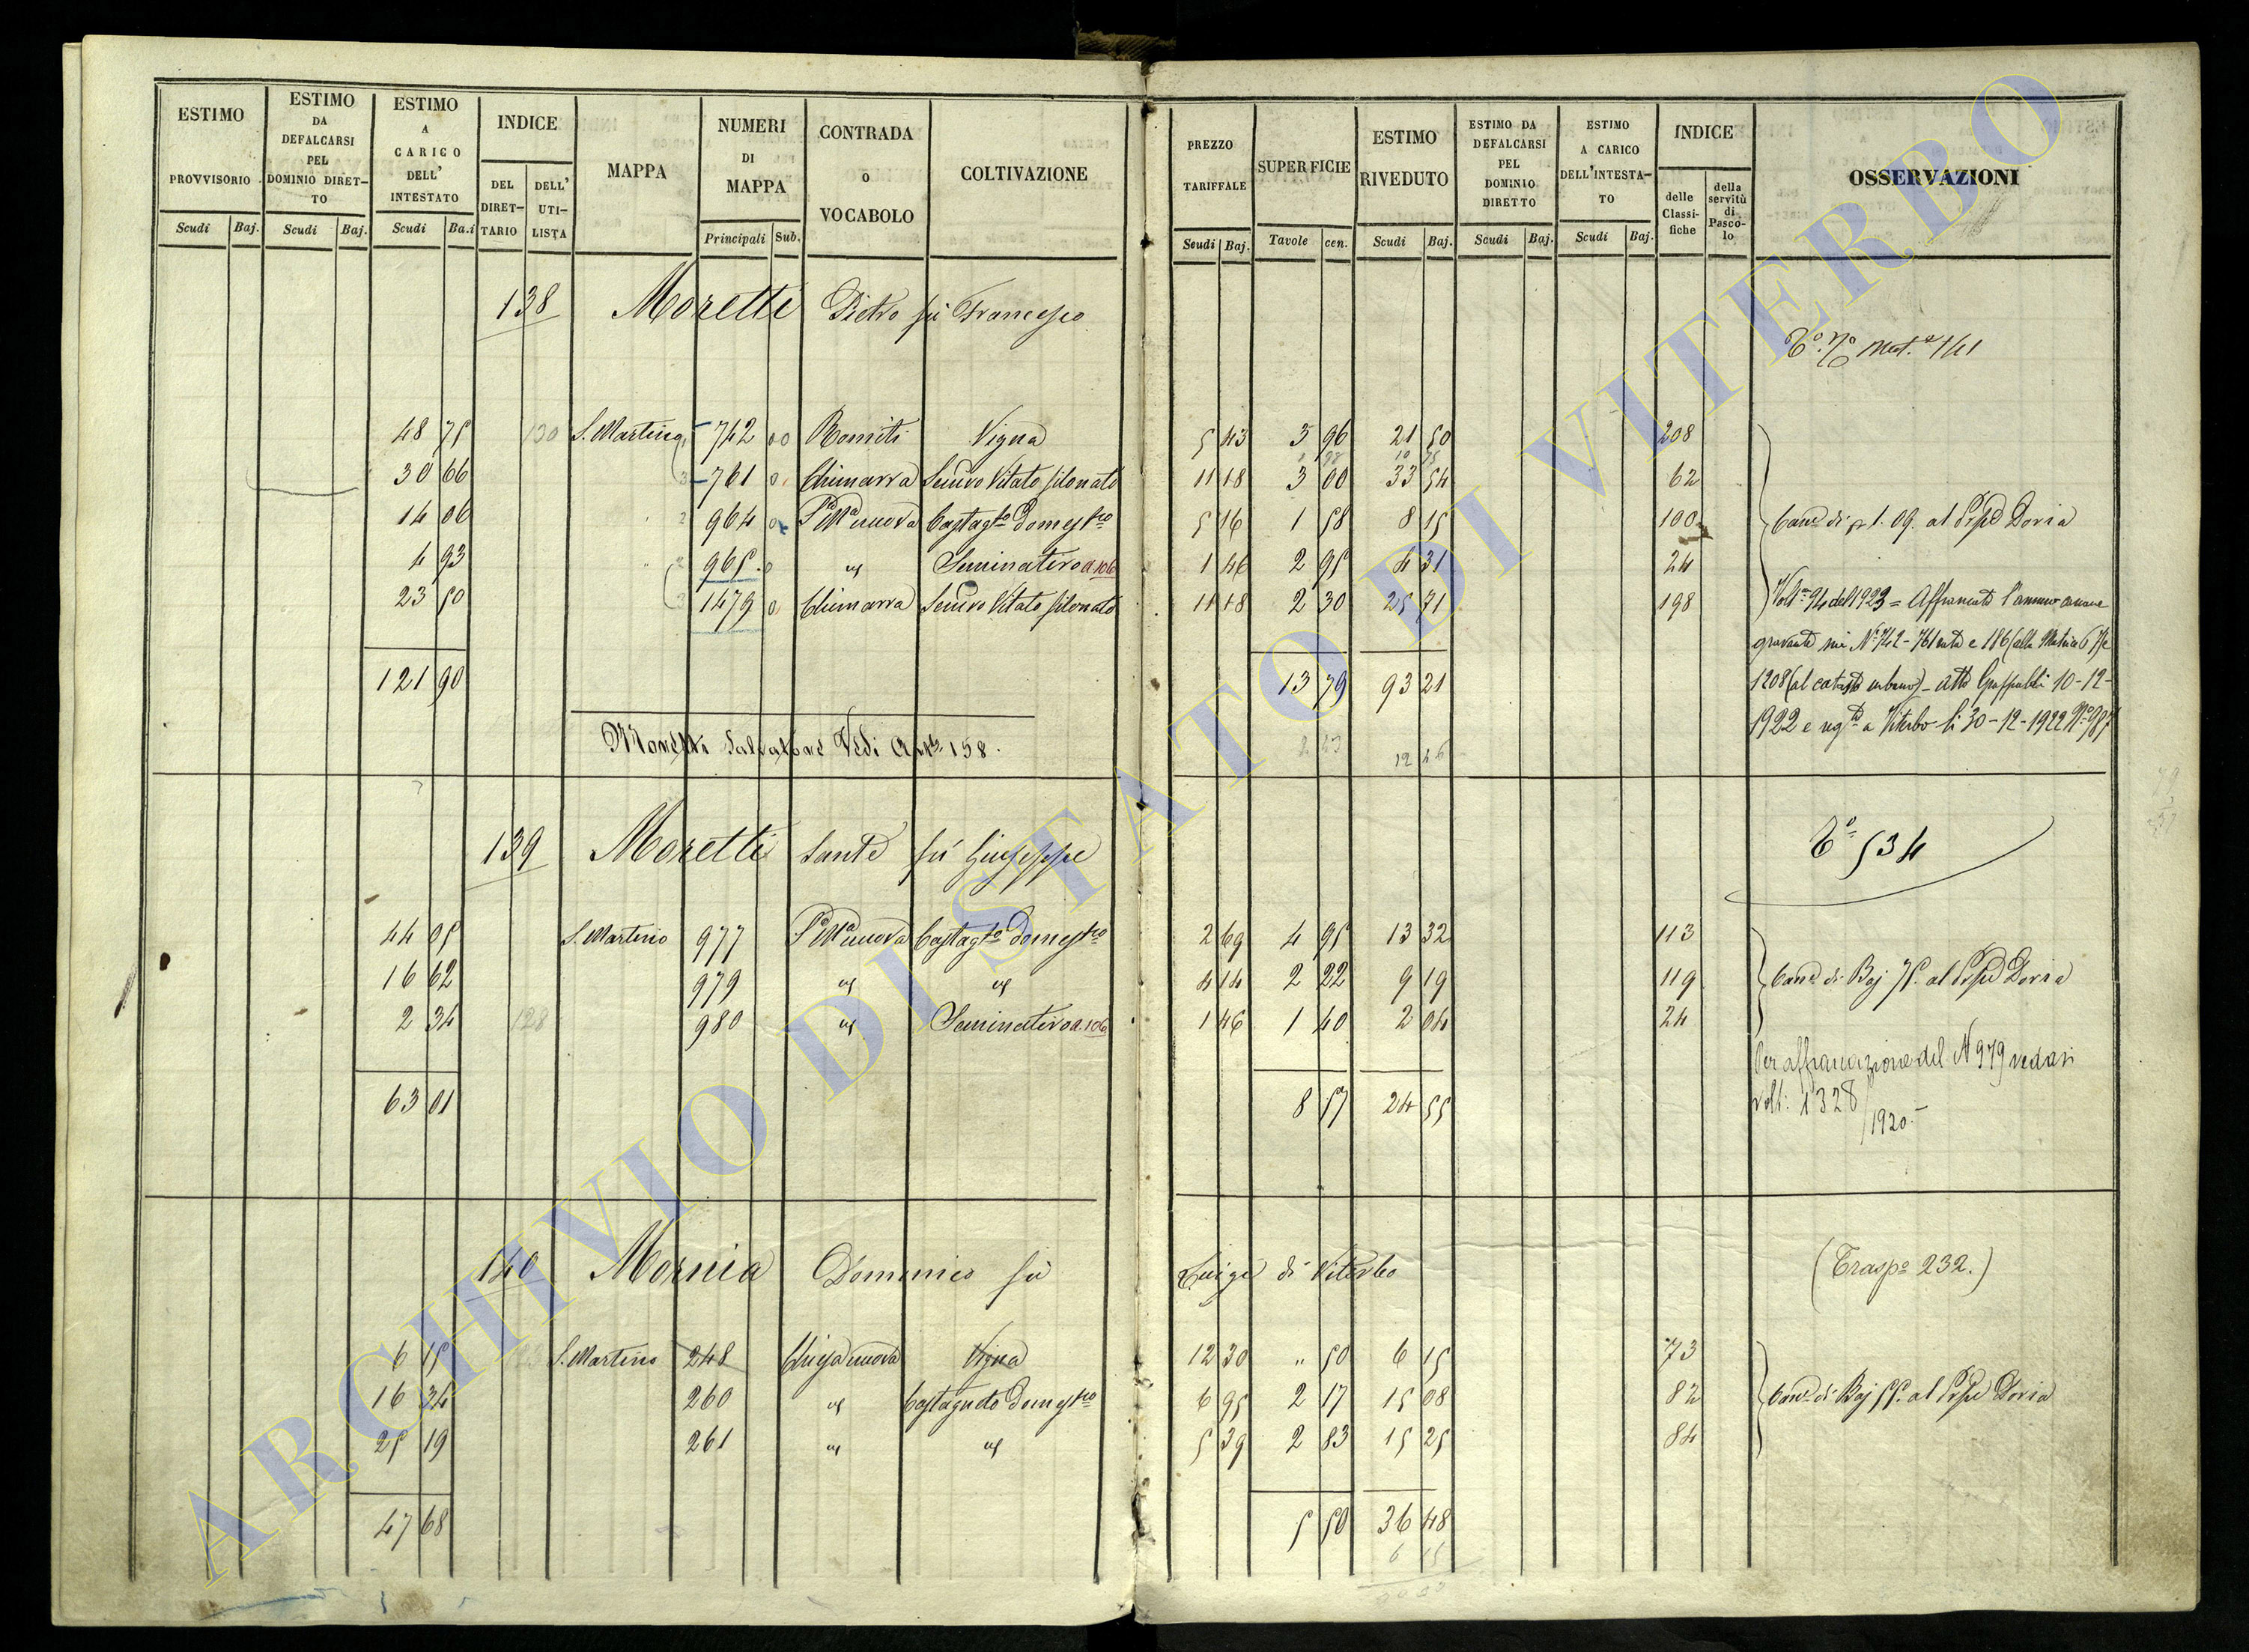 ESTIMO PROVVISORIO Scudi Baj.
ESTIMO DA DEFALCARSI PEL DOMINIO DIRET-TO Scudi Baj.
ESTIMO A CARICO DELL' INTESTATO Scudi Ba.i
INDICE DEL DIRET-TARIO DELL' UTI-LISTA
MAPPA
NUMERI DI MAPPA Principali Sub.
CONTRADA O VOCABOLO
COLTIVAZIONE
PREZZO TARIFFALE Scudi Baj.
SUPERFICIE Tavole cen.
ESTIMO RIVEDUTO Scudi Baj.
ESTIMO DA DEFALCARSI PEL DOMINIO DIRETTO Scudi Baj.
ESTIMO A CARICO DELL'INTESTA-TO Scudi Baj.
INDICE delle Classi-fiche della servitù di Pasco-lo
OSSERVAZIONI
138 Moretti Pietro fù Francesco
48 75 130 S. Martino 742 00 Romiti Vigna 5 43 3 96 21 50 208
30 66 761 0 Chimarra Semivo Vitato filonato 11 18 3 00 33 54 62
14 06 964 Sa Ma nuova Castagto Domestco 5 16 1 58 8 15 100 Cane di 1.09. al Prpe Doria
4 93 965 0 " Seminativo a.106 1 46 2 95 4 31 24
23 50 1479 0 Chimarra Semivo Vitato filonato 11 18 2 30 25 71 198 Volta 94 del 1923 = Affrancato l'annuo canone
gravante sui Ni 742 - 761 e 186 (alla Matrice 67) e
121 90 13 79 93 21 1208 (al catasto urbano) - Atto 10-12-
1922 e regto a Viterbo li 30-12-1922 No 987
Moretti Salvatore Vedi Arto 158.
12 46
139 Moretti Sante fù Giuseppe To 534
44 05 S. Martino 977 Sa Ma nuova Castagto Domestco 2 69 4 95 13 32 113
16 62 979 " " 4 14 2 22 9 19 119 Cane di Baj 75. al Prpe Doria
2 34 128 980 " Seminativo a.106 1 46 1 40 2 04 24
Per affrancazione del N 979 vedasi
63 01 8 57 24 55 volt: 1328/1920.
140 Mornia Domenico fù Luigi di Viterbo (Traspo 232.)
6 15 S. Martino 248 Chiesa nuova Vigna 12 30 " 50 6 15 73
16 34 260 " Castagneto Domestco 6 95 2 17 15 08 82 Cane di Baj 55. al Prpe Doria
25 19 261 " " 5 39 2 83 15 25 84
47 68 5 50 36 48
6 15
ARCHIVIO DI STATO DI VITERBO